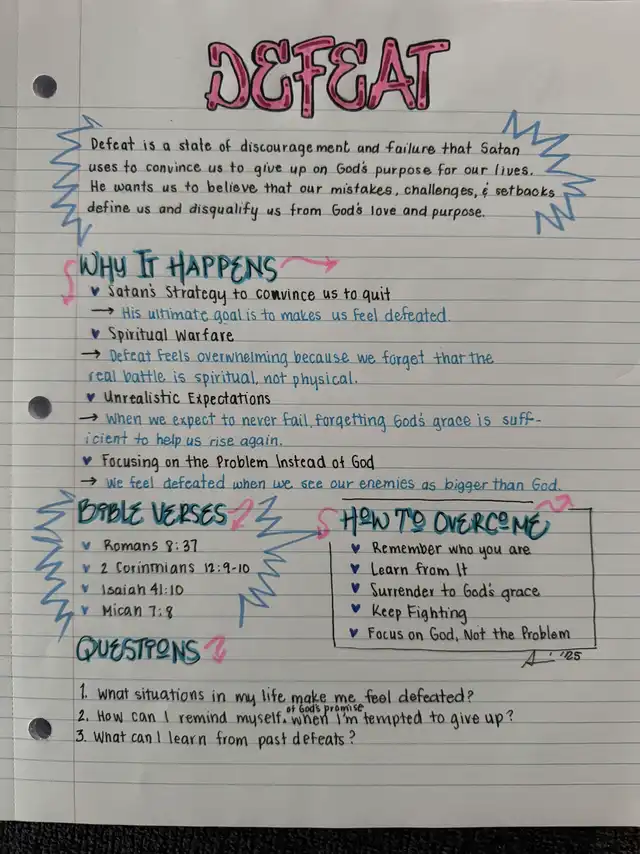 DEFEAT
Defeat is a state of discouragement and failure that Satan
uses to convince us to give up on God's purpose for our lives.
He wants us to believe that our mistakes, challenges, & setbacks
define us and disqualify us from God's love and purpose.
WHY IT HAPPENS
♥ Satan's Strategy to convince us to quit
→ His ultimate goal is to makes us feel defeated.
♥ Spiritual Warfare
→ Defeat feels overwhelming because we forget that the
real battle is spiritual, not physical.
♥ Unrealistic Expectations
→ When we expect to never fail, forgetting God's grace is suff-
icient to help us rise again.
♥ Focusing on the Problem Instead of God
→ We feel defeated when we see our enemies as bigger than God.
BIBLE VERSES
♥ Romans 8:37
♥ 2 Corinthians 12:9-10
♥ Isaiah 41:10
♥ Micah 7:8
HOW TO OVERCOME
♥ Remember who you are
♥ Learn from It
♥ Surrender to God's grace
♥ Keep Fighting
♥ Focus on God, Not the Problem
'25
QUESTIONS
1. What situations in my life make me feel defeated?
2. How can I remind myself of God's promise when I'm tempted to give up?
3. What can I learn from past defeats?